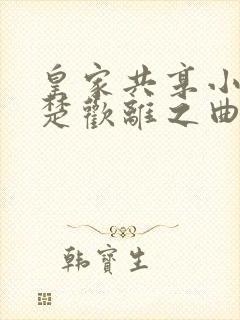 皇家共享小
楚歡離之曲
韩寶生